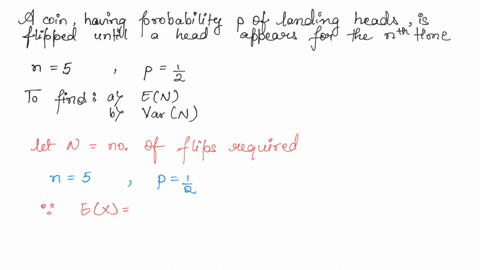 A coin, having probability p of landing heads, is
flipped until a head appears for the nth time
n = 5 , p = 1/2
To find: a) E(N)
b) Var(N)
let N = no. of flips required
n = 5 , p = 1/2
∵ E(X) =